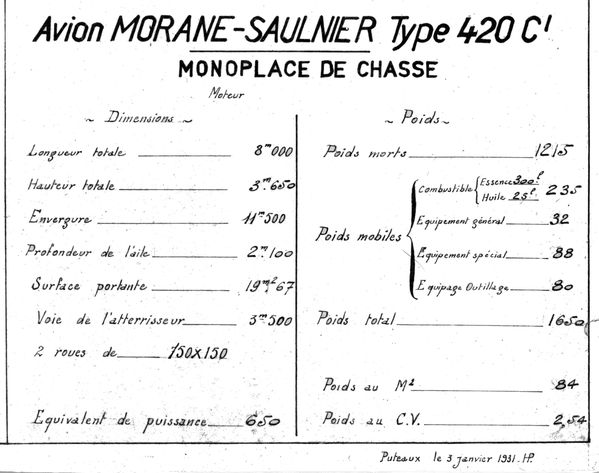 Avion MORANE-SAULNIER Type 420 C1
MONOPLACE DE CHASSE
Moteur
~ Dimensions ~
Longueur totale 8m000
Hauteur totale 3m650
Envergure 11m500
Profondeur de l'aile 2m100
Surface portante 19m267
Voie de l'atterrisseur 3m500
2 roues de 750x150
Equivalent de puissance 650
~ Poids ~
Poids morts 1215
Poids mobiles
Combustible Essence 300l Huile 25l 235
Equipement général 32
Equipement spécial 88
Equipage Outillage 80
Poids total 1650
Poids au M2 84
Poids au C.V. 2,54
Puteaux le 3 janvier 1931. HP.